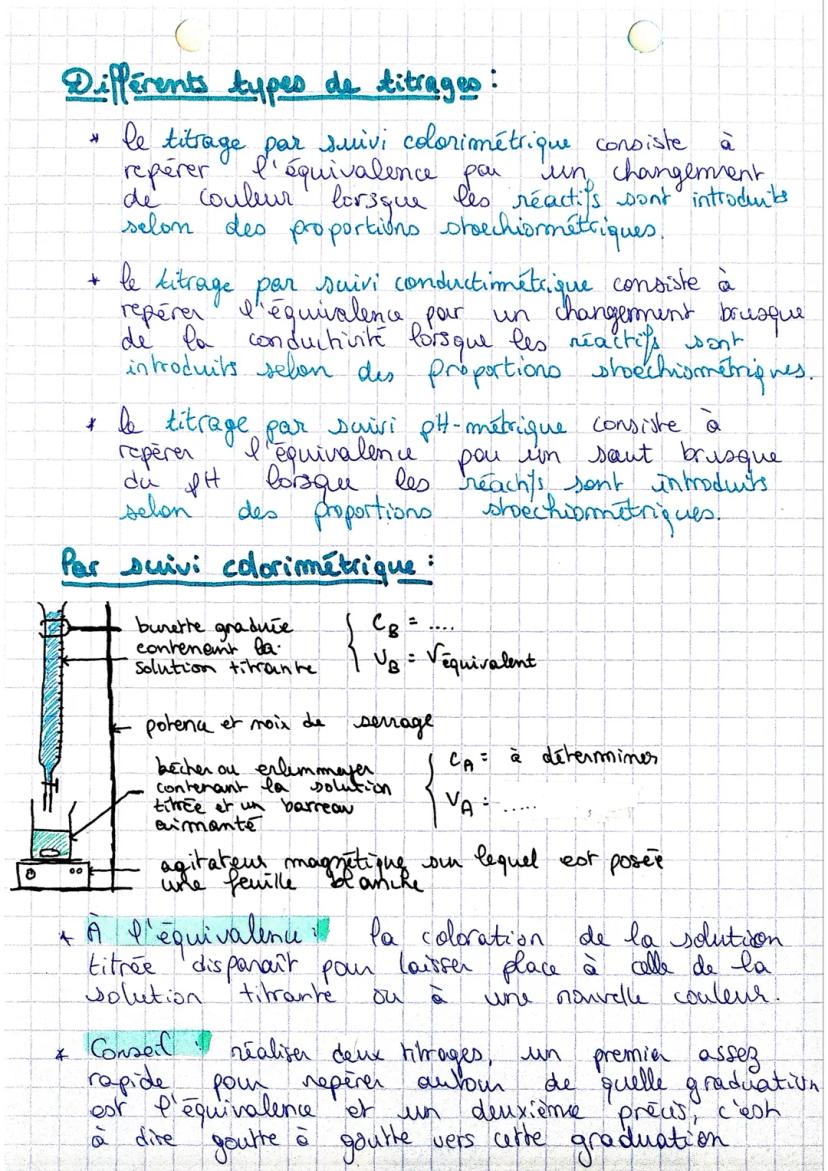 Différents types de titrages :
* le titrage par suivi colorimétrique consiste à
repérer l'équivalence par un changement
de couleur lorsque les réactifs sont introduits
selon des proportions stoechiométriques.
* le titrage par suivi conductimétrique consiste à
repérer l'équivalence par un changement brusque
de la conductivité lorsque les réactifs sont
introduits selon des proportions stoechiométriques.
* le titrage par suivi pH-métrique consiste à
repérer l'équivalence par un saut brusque
du pH lorsque les réactifs sont introduits
selon des proportions stoechiométriques.
Par suivi colorimétrique :
burette graduée
contenant la
solution titrante
C_B = ....
V_B = Véquivalent
potence et noix de serrage
bécher ou erlenmeyer
contenant la solution
titrée et un barreau
aimanté
C_A = à déterminer
V_A = .....
agitateur magnétique sur lequel est posée
une feuille blanche
* À l'équivalence : la coloration de la solution
titrée disparaît pour laisser place à celle de la
solution titrante ou à une nouvelle couleur.
* Conseil : réaliser deux titrages, un premier assez
rapide pour repérer autour de quelle graduation
est l'équivalence et un deuxième précis, c'est
à dire goutte à goutte vers cette graduation